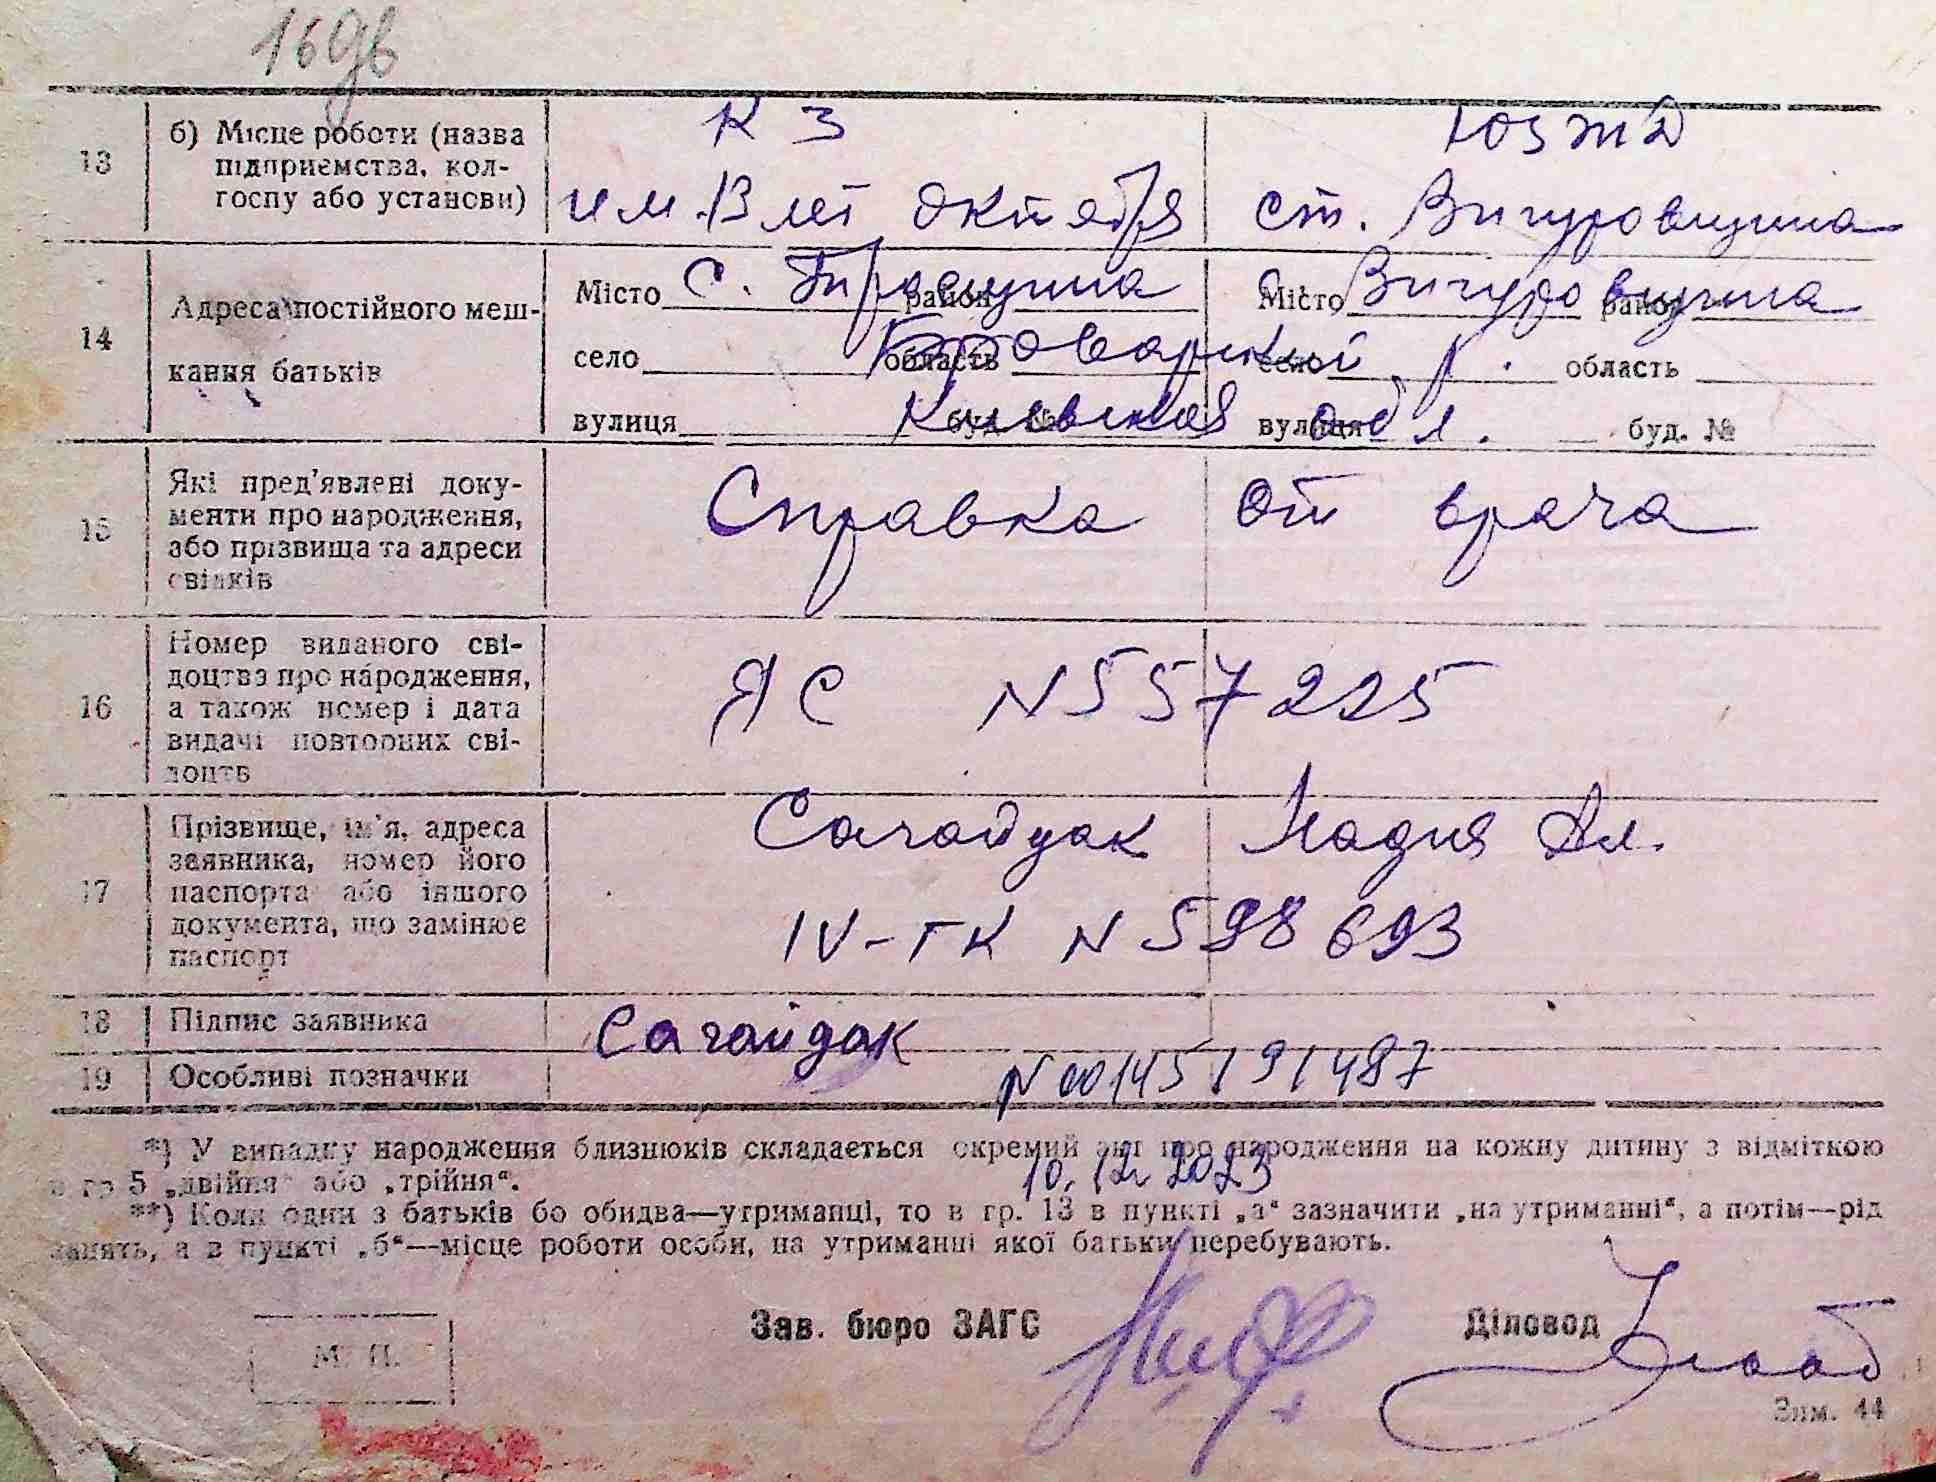 169в
13 б) Місце роботи (назва підприємства, колгоспу або установи) КЗ ЮЗЖД
им. 13 лет Октября ст. Вигуровщина
14 Адреса постійного мешкання батьків
Місто С. Троещина район Місто Вигуровщина район
село область Броварский село р. область
вулиця буд. № Киевская вулиця обл. буд. №
15 Які пред'явлені документи про народження, або прізвища та адреси свідків Справка от врача
16 Номер виданого свідоцтва про народження, а також номер і дата видачі повторних свідоцтв ЯС N 557225
17 Прізвище, ім'я, адреса заявника, номер його паспорта або іншого документа, що замінює паспорт
Сагайдак Надия Ал.
IV-ГК N 598693
18 Підпис заявника Сагайдак
19 Особливі позначки N 00145191487
10.12.2023
*) У випадку народження близнюків складається окремий акт про народження на кожну дитину з відміткою
в гр 5 „двійня“ або „трійня“.
**) Коли один з батьків бо обидва—утриманці, то в гр. 13 в пункті „а“ зазначити „на утриманні“, а потім—рід
занять, а в пункті „б“—місце роботи особи, на утриманні якої батьки перебувають.
Зав. бюро ЗАГС Діловод
М. П.
Зам. 44